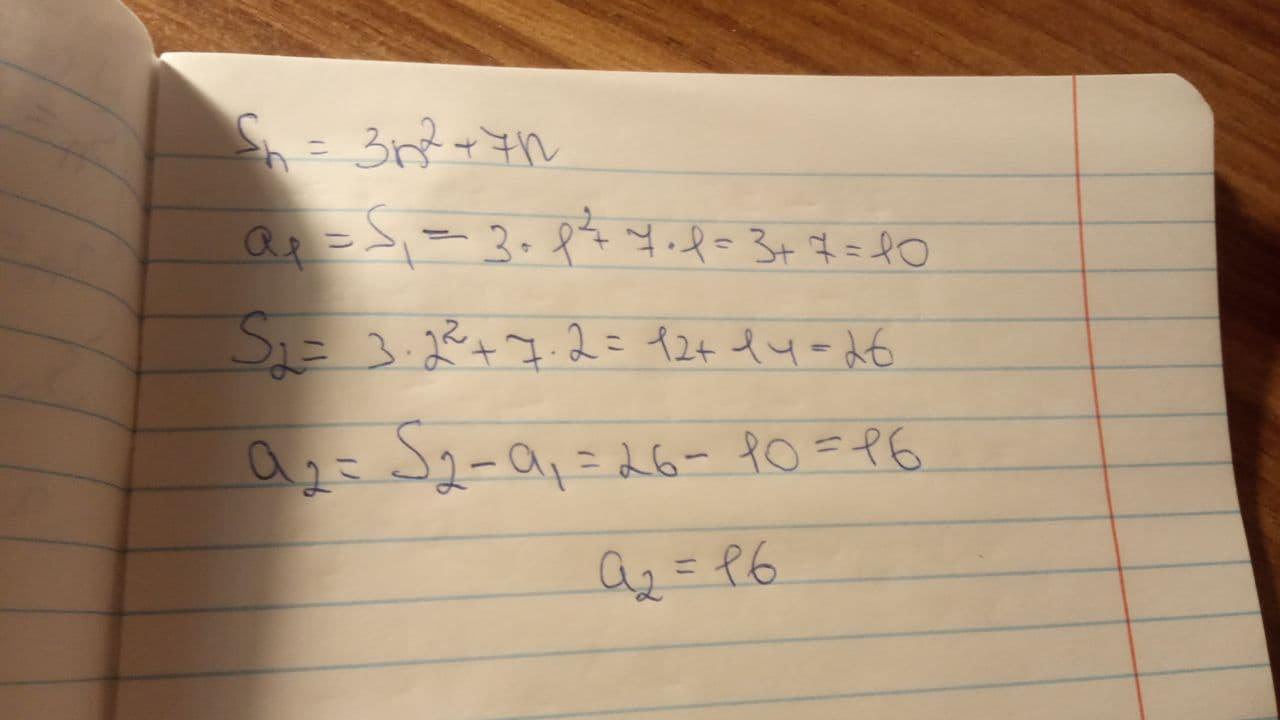 Sn = 3n² + 7n
a₁ = S₁ = 3 · 1² + 7 · 1 = 3 + 7 = 10
S₂ = 3 · 2² + 7 · 2 = 12 + 14 = 26
a₂ = S₂ - a₁ = 26 - 10 = 16
a₂ = 16